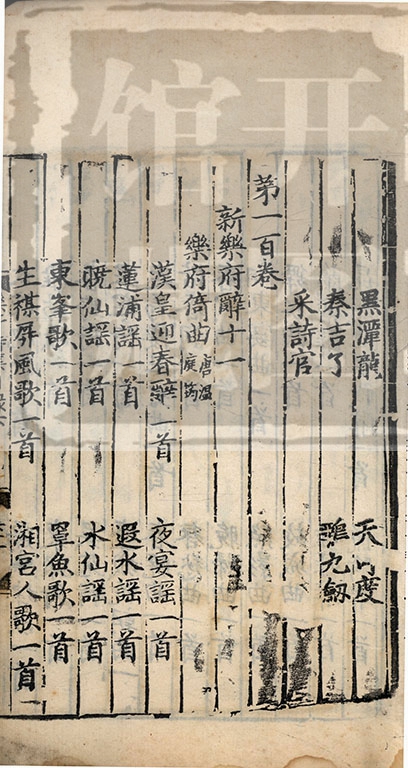 馆 开
黑潭龍 天可度
秦吉了 鵶九劒
采詩官
第一百卷
新樂府辭十一
樂府倚曲 唐溫庭筠
漢皇迎春辭一首 夜宴謠一首
蓮浦謠一首 遐水謠一首
曉仙謠一首 水仙謠一首
東峯歌一首 罩魚歌一首
生禖屏風歌一首 湘宮人歌一首